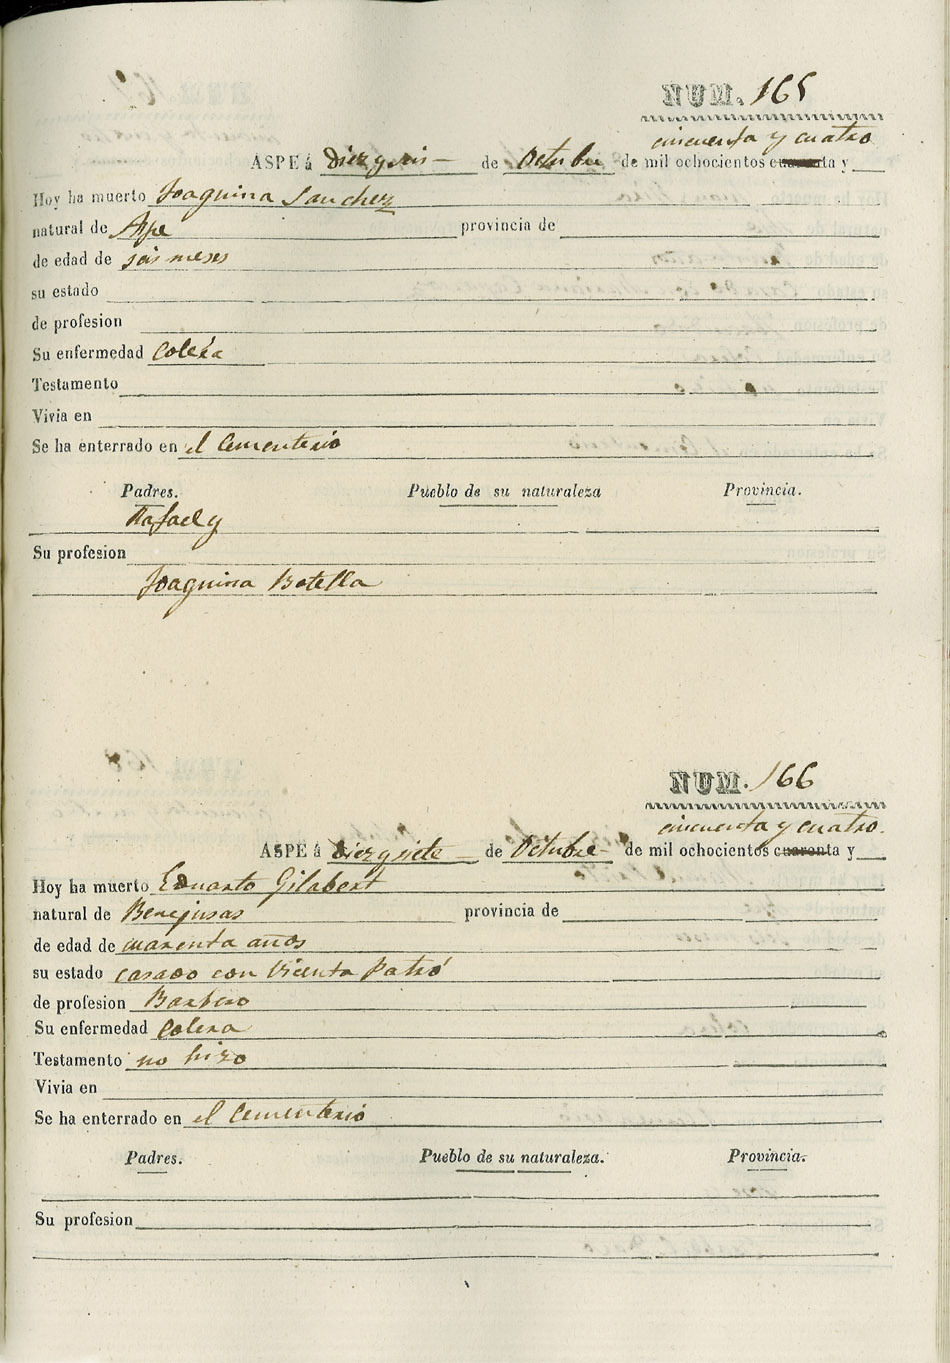 NUM. 165
cincuenta y cuatro
ASPE á Diez y seis de Octubre de mil ochocientos cuarenta y
Hoy ha muerto Joaquina Sanchez
natural de Aspe provincia de
de edad de seis meses
su estado
de profesion
Su enfermedad Colera
Testamento
Vivia en
Se ha enterrado en el Cementerio
Padres. Pueblo de su naturaleza Provincia.
Rafael y
Su profesion
Joaquina Botella
NUM. 166
cincuenta y cuatro.
ASPE á Diez y siete de Octubre de mil ochocientos cuarenta y
Hoy ha muerto Eduardo Gilabert
natural de provincia de
de edad de cuarenta años
su estado casado con Vicenta Patró
de profesion Barbero
Su enfermedad Colera
Testamento no hizo
Vivia en
Se ha enterrado en el Cementerio
Padres. Pueblo de su naturaleza. Provincia.
Su profesion